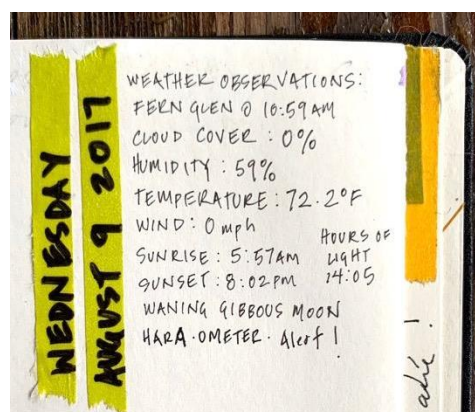 WEDNESDAY
AUGUST 9 2017
WEATHER OBSERVATIONS:
FERN GLEN @ 10:59AM
CLOUD COVER : 0%
HUMIDITY : 59%
TEMPERATURE : 72.2°F
WIND : 0 mph
SUNRISE : 5:57AM
SUNSET : 8:02PM
HOURS OF
LIGHT
14:05
WANING GIBBOUS MOON
HARA·OMETER· Alert !